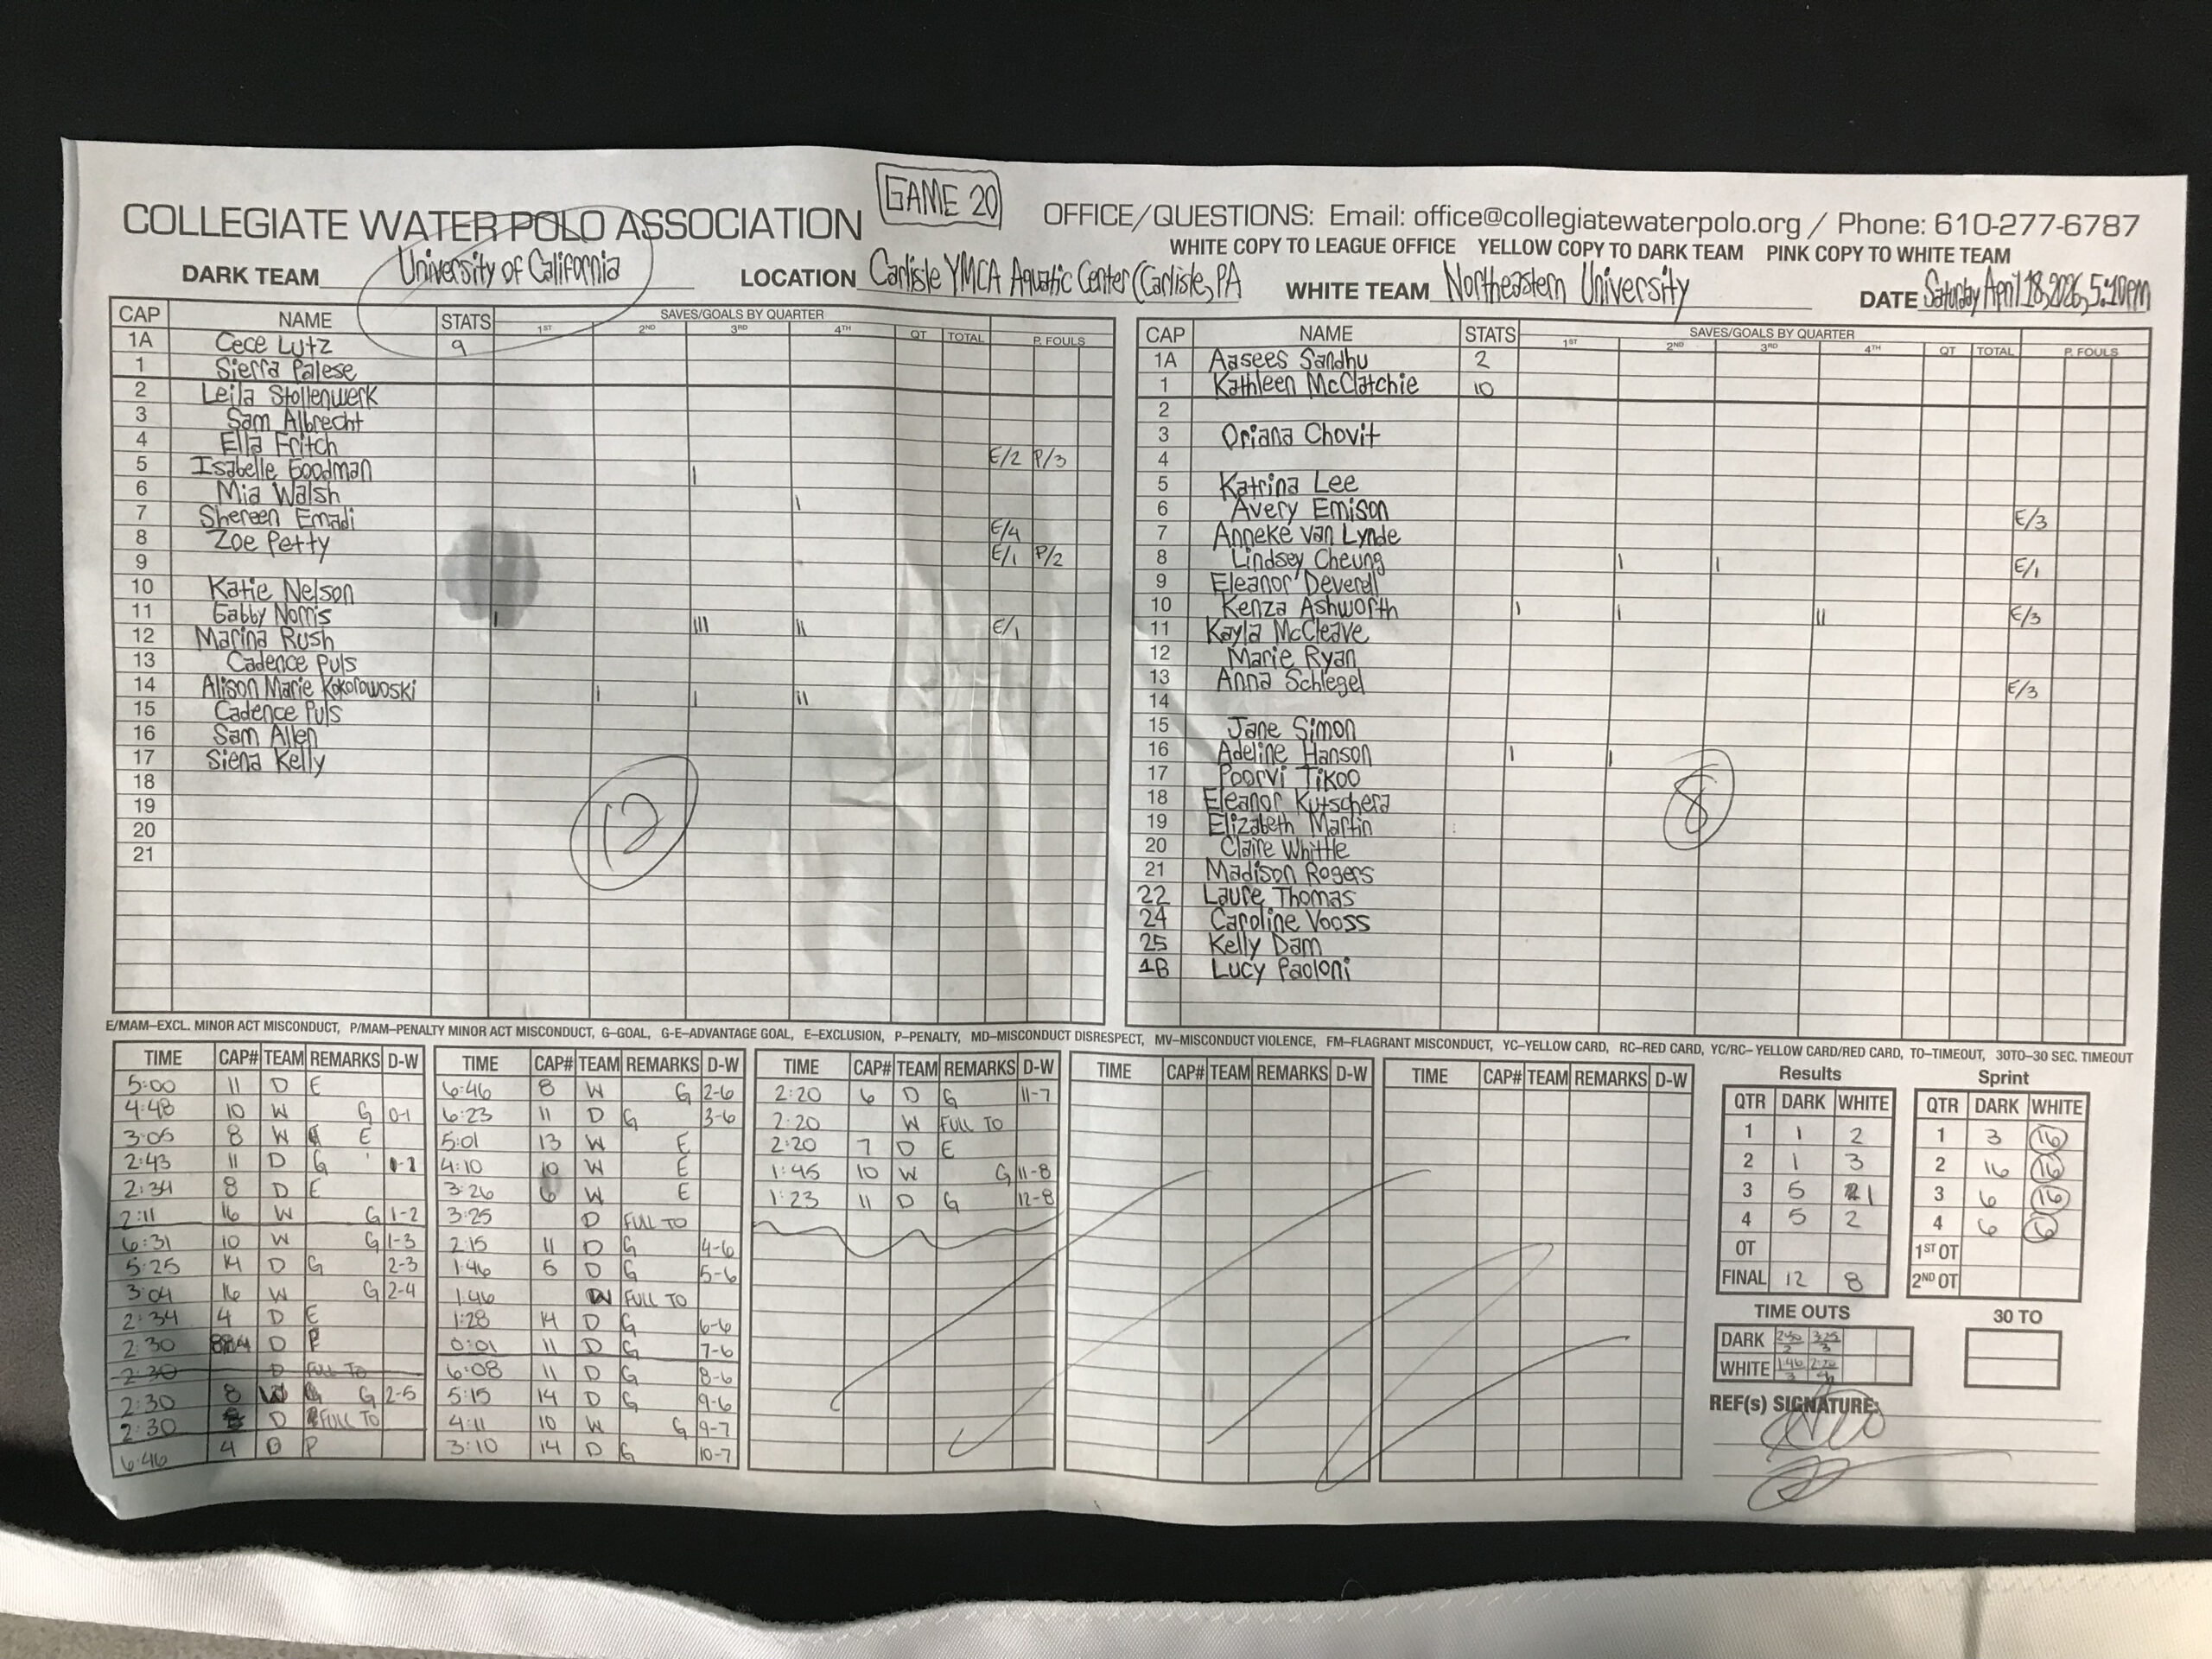 GAME 20
COLLEGIATE WATER POLO ASSOCIATION OFFICE/QUESTIONS: Email: office@collegiatewaterpolo.org / Phone: 610-277-6787
WHITE COPY TO LEAGUE OFFICE YELLOW COPY TO DARK TEAM PINK COPY TO WHITE TEAM
DARK TEAM University of California LOCATION Carlisle YMCA Aquatic Center (Carlisle, PA WHITE TEAM Northeastern University DATE Saturday April 18, 2026, 5:10pm
CAP NAME STATS SAVES/GOALS BY QUARTER
1ST 2ND 3RD 4TH QT TOTAL P. FOULS
1A Cece Lutz 9
1 Sierra Palese
2 Leila Stollenwerk
3 Sam Albrecht
4 Ella Fritch E/2 P/3
5 Isabelle Goodman |
6 Mia Walsh |
7 Shereen Emadi E/4
8 Zoe Petty E/1 P/2
9
10 Katie Nelson
11 Gabby Norris | ||| || E/1
12 Marina Rush
13 Cadence Puls
14 Alison Marie Kokorowoski | | ||
15 Cadence Puls
16 Sam Allen
17 Siena Kelly
18
19
20
21
12
CAP NAME STATS SAVES/GOALS BY QUARTER
1ST 2ND 3RD 4TH QT TOTAL P. FOULS
1A Aasees Sandhu 2
1 Kathleen McClatchie 10
2
3 Oriana Chovit
4
5 Katrina Lee
6 Avery Emison E/3
7 Anneke van Lynde
8 Lindsey Cheung | | E/1
9 Eleanor Deverell
10 Kenza Ashworth | | || E/3
11 Kayla McCleave
12 Marie Ryan
13 Anna Schlegel E/3
14
15 Jane Simon
16 Adeline Hanson | |
17 Poorvi Tikoo
18 Eleanor Kutschera
19 Elizabeth Martin
20 Claire Whittle
21 Madison Rogers
22 Laure Thomas
24 Caroline Vooss
25 Kelly Dam
1B Lucy Paoloni
8
E/MAM–EXCL. MINOR ACT MISCONDUCT, P/MAM–PENALTY MINOR ACT MISCONDUCT, G–GOAL, G-E–ADVANTAGE GOAL, E–EXCLUSION, P–PENALTY, MD–MISCONDUCT DISRESPECT, MV–MISCONDUCT VIOLENCE, FM–FLAGRANT MISCONDUCT, YC–YELLOW CARD, RC–RED CARD, YC/RC– YELLOW CARD/RED CARD, TO–TIMEOUT, 30TO–30 SEC. TIMEOUT
TIME CAP# TEAM REMARKS D-W
5:00 11 D E
4:48 10 W G 0-1
3:05 8 W E
2:43 11 D G 1-1
2:34 8 D E
2:11 16 W G 1-2
6:31 10 W G 1-3
5:25 14 D G 2-3
3:04 16 W G 2-4
2:34 4 D E
2:30 D P
2:30 D FULL TO
2:30 8 W G 2-5
2:30 D FULL TO
6:46 4 D P
TIME CAP# TEAM REMARKS D-W
6:46 8 W G 2-6
6:23 11 D G 3-6
5:01 13 W E
4:10 10 W E
3:26 6 W E
3:25 D FULL TO
2:15 11 D G 4-6
1:46 5 D G 5-6
1:46 W FULL TO
1:28 14 D G 6-6
0:01 11 D G 7-6
6:08 11 D G 8-6
5:15 14 D G 9-6
4:11 10 W G 9-7
3:10 14 D G 10-7
TIME CAP# TEAM REMARKS D-W
2:20 6 D G 11-7
2:20 W FULL TO
2:20 7 D E
1:45 10 W G 11-8
1:23 11 D G 12-8
TIME CAP# TEAM REMARKS D-W
TIME CAP# TEAM REMARKS D-W
Results
QTR DARK WHITE
1 1 2
2 1 3
3 5 1
4 5 2
OT
FINAL 12 8
Sprint
QTR DARK WHITE
1 3 16
2 16 16
3 6 16
4 6 6
1ST OT
2ND OT
TIME OUTS
DARK 2:30 2 3:25 3
WHITE 1:46 3 2:20 4
30 TO
REF(s) SIGNATURE: